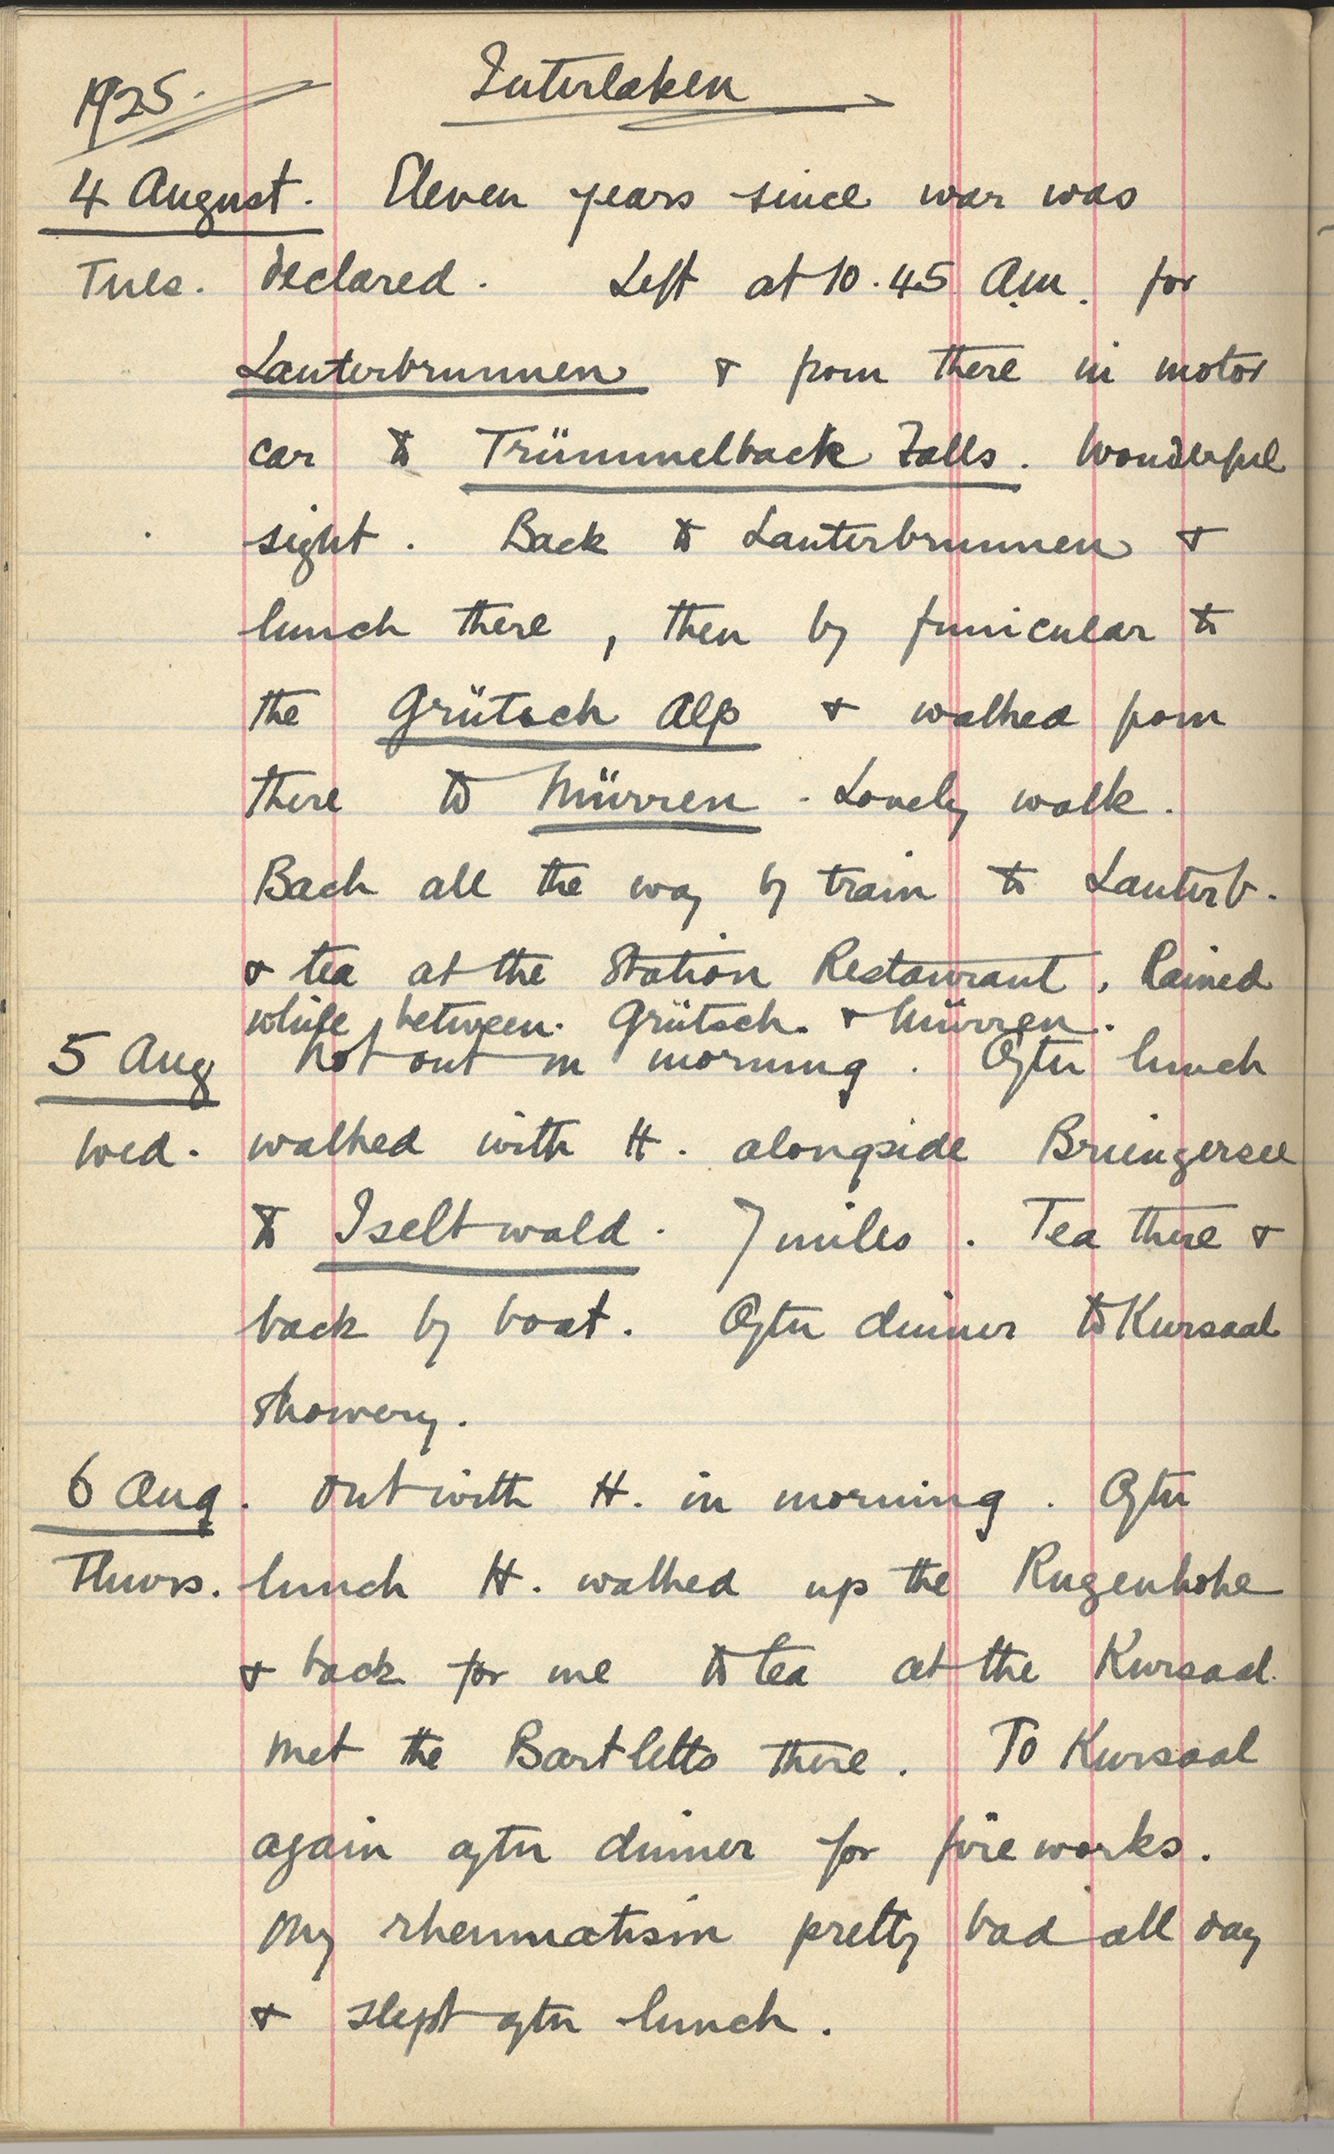 1925.
Interlaken
4 August. Eleven years since war was
Tues. declared. Left at 10.45 A.m. for
Lauterbrunnen & from there in motor
car to Trümmelback Falls. Wonderful
sight. Back to Lauterbrunnen &
lunch there, then by funicular to
the Grütsch Alp & walked from
there to Mürren. Lovely walk.
Back all the way by train to Lauterb.
& tea at the Station Restaurant. Rained
while between Grütsch. & Mürren.
5 Aug Not out in morning. After lunch
Wed. walked with H. alongside Brienzersee
to Iseltwald. 7 miles. Tea there &
back by boat. After dinner to Kursaal
Showery.
6 Aug. Out with H. in morning. After
Thurs. lunch H. walked up the Rugenhohe
& back for me to tea at the Kursaal.
Met the Bartletts there. To Kursaal
again after dinner for fireworks.
My rheumatism pretty bad all day
& slept after lunch.